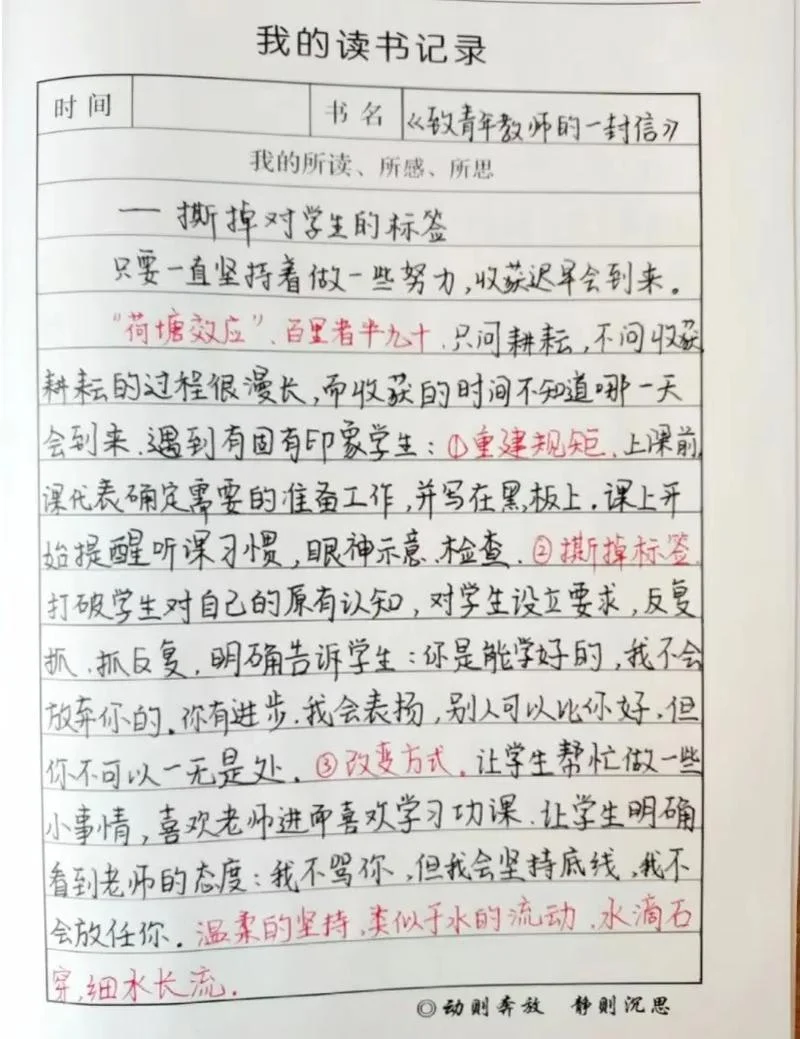 我的读书记录
时间 书名 《致青年教师的一封信》
我的所读、所感、所思
一 撕掉对学生的标签
只要一直坚持着做一些努力,收获迟早会到来。
“荷塘效应”、百里者半九十.只问耕耘,不问收获
耕耘的过程很漫长,而收获的时间不知道哪一天
会到来.遇到有固有印象学生:①重建规矩.上课前,
课代表确定需要的准备工作,并写在黑板上.课上开
始提醒听课习惯,眼神示意.检查.②撕掉标签.
打破学生对自己的原有认知,对学生设立要求,反复
抓.抓反复.明确告诉学生:你是能学好的,我不会
放弃你的.你有进步.我会表扬,别人可以比你好.但
你不可以一无是处.③改变方式.让学生帮忙做一些
小事情,喜欢老师进而喜欢学习功课.让学生明确
看到老师的态度:我不骂你,但我会坚持底线,我不
会放任你.温柔的坚持.类似于水的流动.水滴石
穿,细水长流.
◎动则奔放 静则沉思